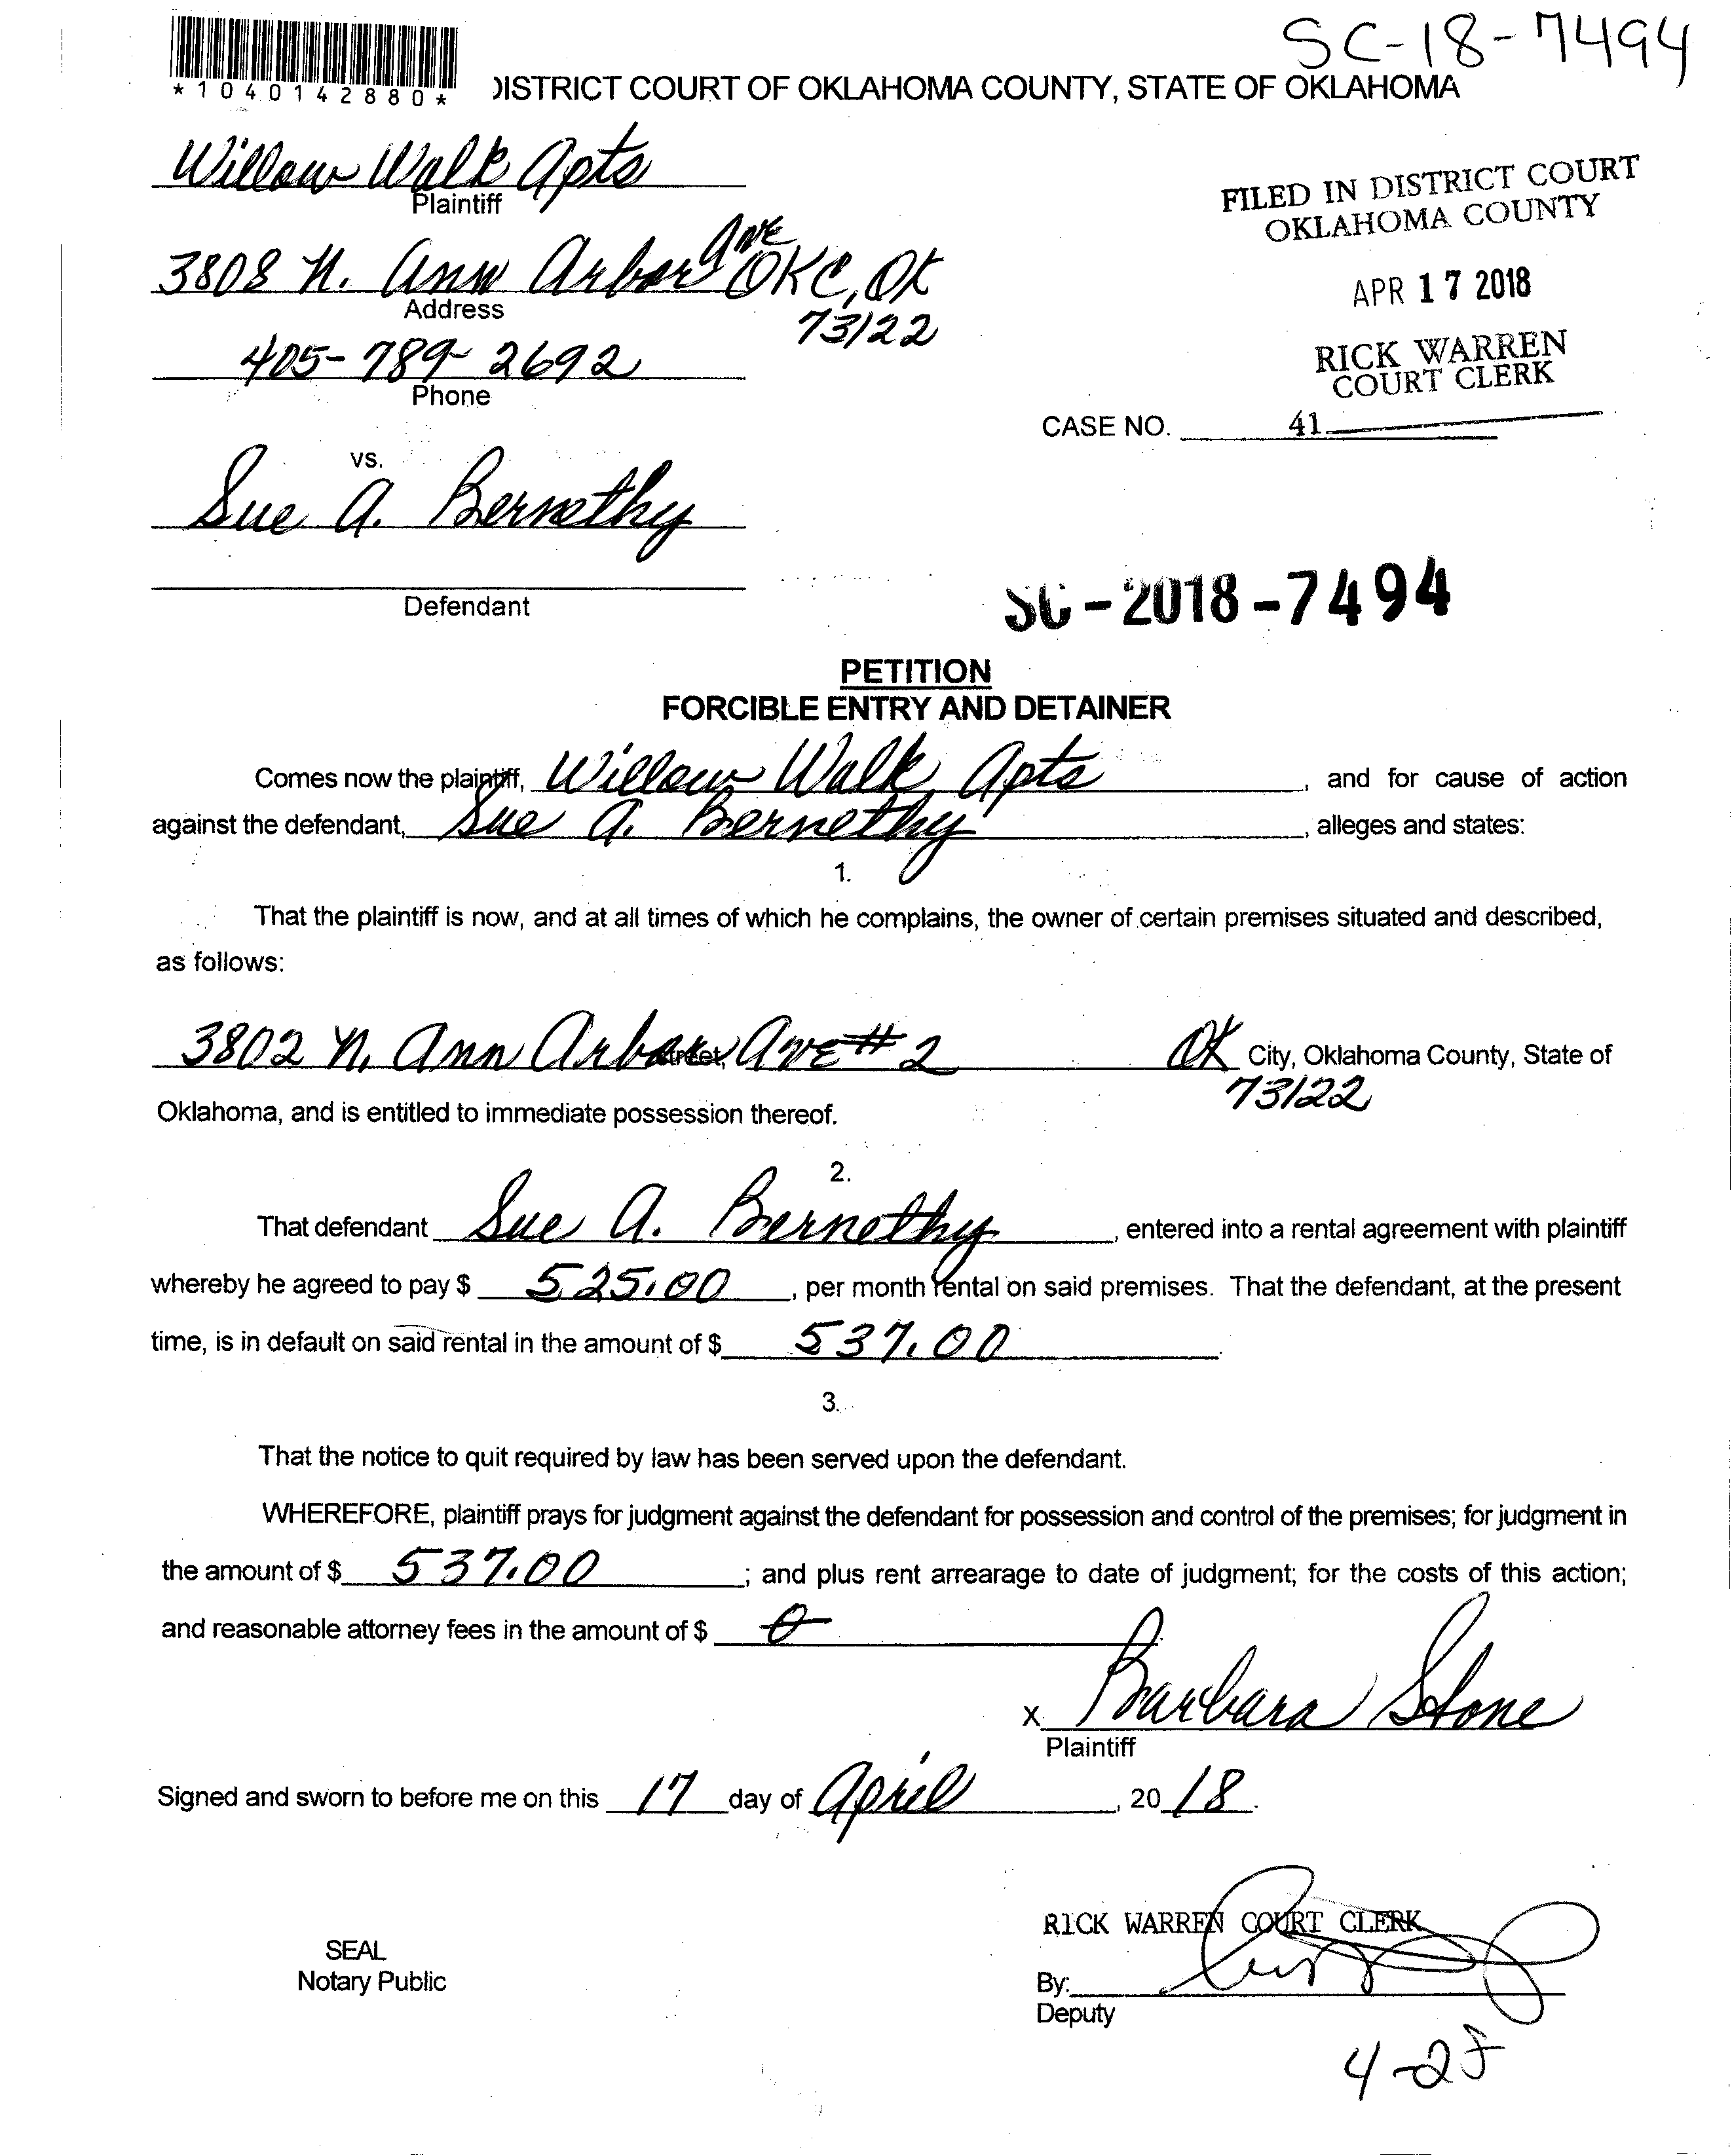 SC-18-7494
*1040142880*
DISTRICT COURT OF OKLAHOMA COUNTY, STATE OF OKLAHOMA
Willow Walk Apts
Plaintiff
FILED IN DISTRICT COURT
OKLAHOMA COUNTY
3808 N. Ann Arbor Ave OKC, OK
73122
Address
APR 17 2018
405-789-2692
Phone
RICK WARREN
COURT CLERK
CASE NO. 41
vs.
Sue A. Bernethy
Defendant
SC-2018-7494
PETITION
FORCIBLE ENTRY AND DETAINER
Comes now the plaintiff, Willow Walk Apts, and for cause of action
against the defendant, Sue A. Bernethy, alleges and states:
1.
That the plaintiff is now, and at all times of which he complains, the owner of certain premises situated and described,
as follows:
3802 N. Ann Arbor street, Ave #2 OK City, Oklahoma County, State of
73122
Oklahoma, and is entitled to immediate possession thereof.
2.
That defendant Sue A. Bernethy, entered into a rental agreement with plaintiff
whereby he agreed to pay $ 525.00, per month rental on said premises. That the defendant, at the present
time, is in default on said rental in the amount of $ 537.00.
3.
That the notice to quit required by law has been served upon the defendant.
WHEREFORE, plaintiff prays for judgment against the defendant for possession and control of the premises; for judgment in
the amount of $ 537.00; and plus rent arrearage to date of judgment; for the costs of this action;
and reasonable attorney fees in the amount of $ 0.
X Barbara Stone
Plaintiff
Signed and sworn to before me on this 17 day of April, 2018.
RICK WARREN COURT CLERK
SEAL
Notary Public
By:
Deputy